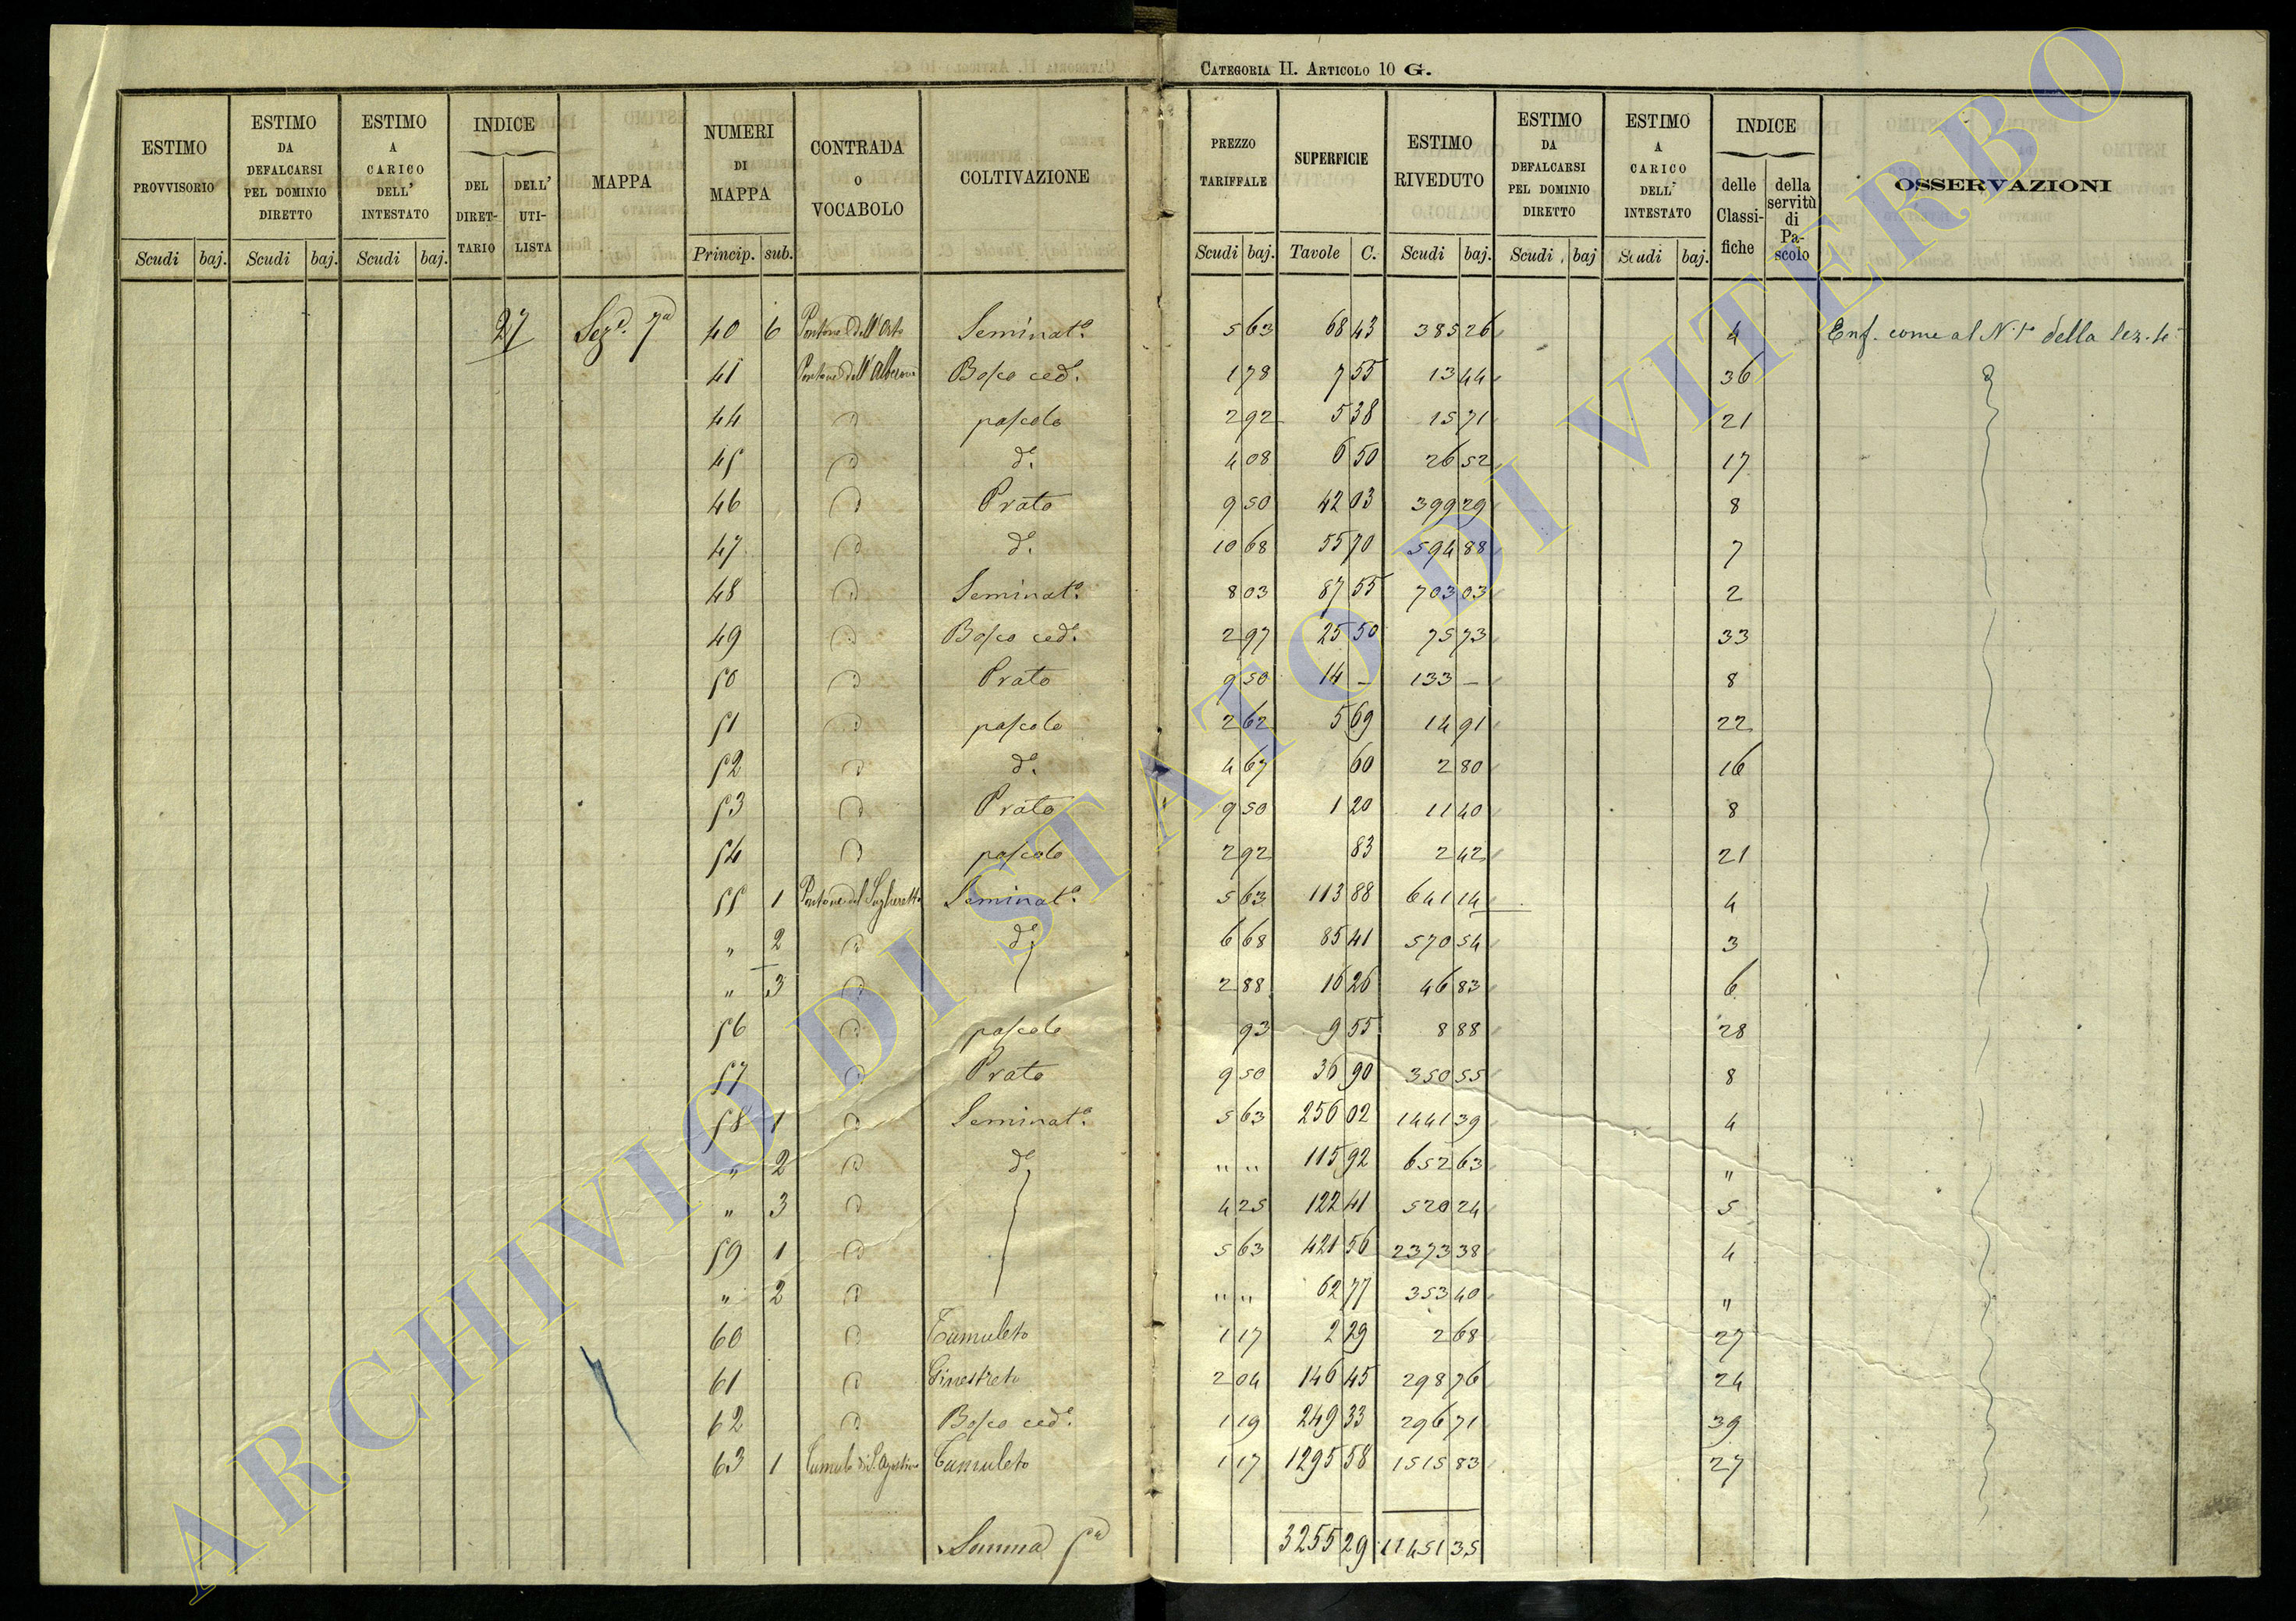 CATEGORIA II. ARTICOLO 10 G.
ESTIMO PROVVISORIO | ESTIMO DA DEFALCARSI PEL DOMINIO DIRETTO | ESTIMO A CARICO DELL' INTESTATO | INDICE | MAPPA | NUMERI DI MAPPA | CONTRADA O VOCABOLO | COLTIVAZIONE | PREZZO TARIFFALE | SUPERFICIE | ESTIMO RIVEDUTO | ESTIMO DA DEFALCARSI PEL DOMINIO DIRETTO | ESTIMO A CARICO DELL' INTESTATO | INDICE | OSSERVAZIONI
DEL DIRETTARIO | DELL' UTILISTA | delle Classifiche | della servitù di Pascolo
Scudi | baj. | Scudi | baj. | Scudi | baj. | Princip. | sub. | Scudi | baj. | Tavole | C. | Scudi | baj. | Scudi | baj | Scudi | baj.
27 | Sez.e 7a | 40 | 6 | Pontone dell'Orto | Seminat.o | 5 63 | 68 43 | 385 26 | 4 | Enf. come al N. 1° della Sez. 4
41 | Pontone dell' | Bosco ced.o | 1 78 | 7 55 | 13 44 | 36
44 | " | pascolo | 2 92 | 5 38 | 15 71 | 21
45 | " | d.o | 4 08 | 6 50 | 26 52 | 17
46 | " | Prato | 9 50 | 42 03 | 399 29 | 8
47 | " | d.o | 10 68 | 55 70 | 594 88 | 7
48 | " | Seminat.o | 8 03 | 87 55 | 703 03 | 2
49 | " | Bosco ced.o | 2 97 | 25 50 | 75 73 | 33
50 | " | Prato | 9 50 | 14 – | 133 – | 8
51 | " | pascolo | 2 62 | 5 69 | 14 91 | 22
52 | " | d.o | 4 67 | 60 | 2 80 | 16
53 | " | Prato | 9 50 | 1 20 | 11 40 | 8
54 | " | pascolo | 2 92 | 83 | 2 42 | 21
55 | 1 | Pontone del | Seminat.o | 5 63 | 113 88 | 641 14 | 4
" | 2 | " | d.o | 6 68 | 85 41 | 570 54 | 3
" | 3 | " | 2 88 | 16 26 | 46 83 | 6
56 | " | pascolo | 93 | 9 55 | 8 88 | 28
57 | " | Prato | 9 50 | 36 90 | 350 55 | 8
58 | 1 | " | Seminat.o | 5 63 | 256 02 | 1441 39 | 4
" | 2 | " | d.o | " " | 115 92 | 652 63 | "
" | 3 | " | 4 25 | 122 41 | 520 24 | 5
59 | 1 | " | 5 63 | 421 56 | 2373 38 | 4
" | 2 | " | " " | 62 77 | 353 40 | "
60 | " | Tumuleto | 1 17 | 2 29 | 2 68 | 27
61 | " | Ginestreto | 2 04 | 146 45 | 298 76 | 24
62 | " | Bosco ced.o | 1 19 | 249 33 | 296 71 | 39
63 | 1 | Tumulo di S. Agostino | Tumuleto | 1 17 | 1295 58 | 1515 83 | 27
Somma 5a | 3255 29 | 11451 35
ARCHIVIO DI STATO DI VITERBO